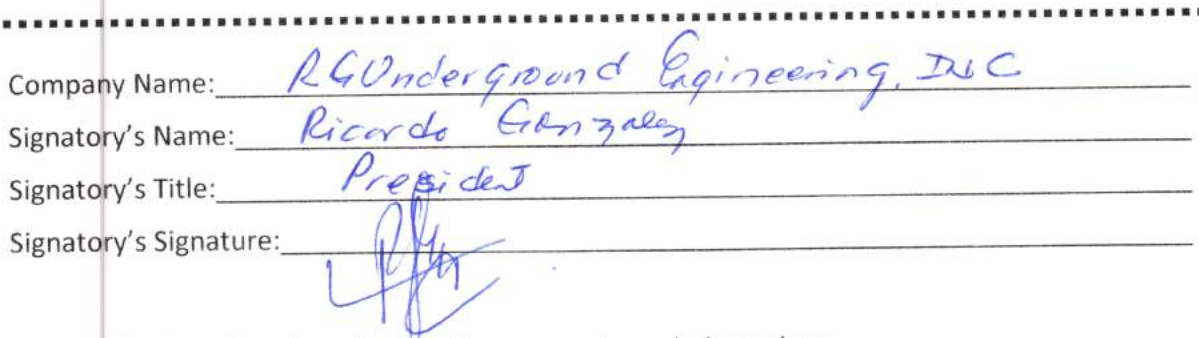 Company Name: RGUnderground Engineering, INC
Signatory's Name: Ricardo Gonzalez
Signatory's Title: President
Signatory's Signature: